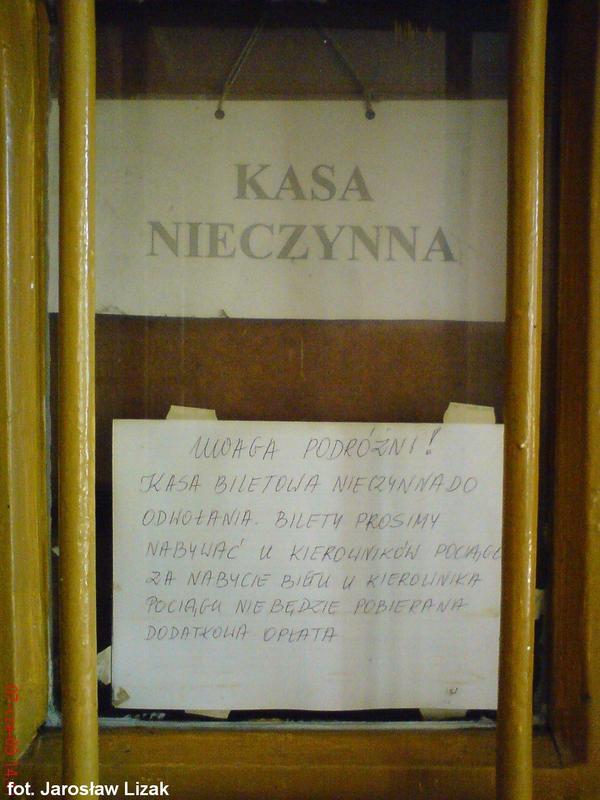 KASA
NIECZYNNA
UWAGA PODRÓŻNI!
KASA BILETOWA NIECZYNNA DO
ODWOŁANIA. BILETY PROSIMY
NABYWAĆ U KIEROWNIKÓW POCIĄGU
ZA NABYCIE BILETU U KIEROWNIKA
POCIĄGU NIE BĘDZIE POBIERANA
DODATKOWA OPŁATA
fot. Jarosław Lizak